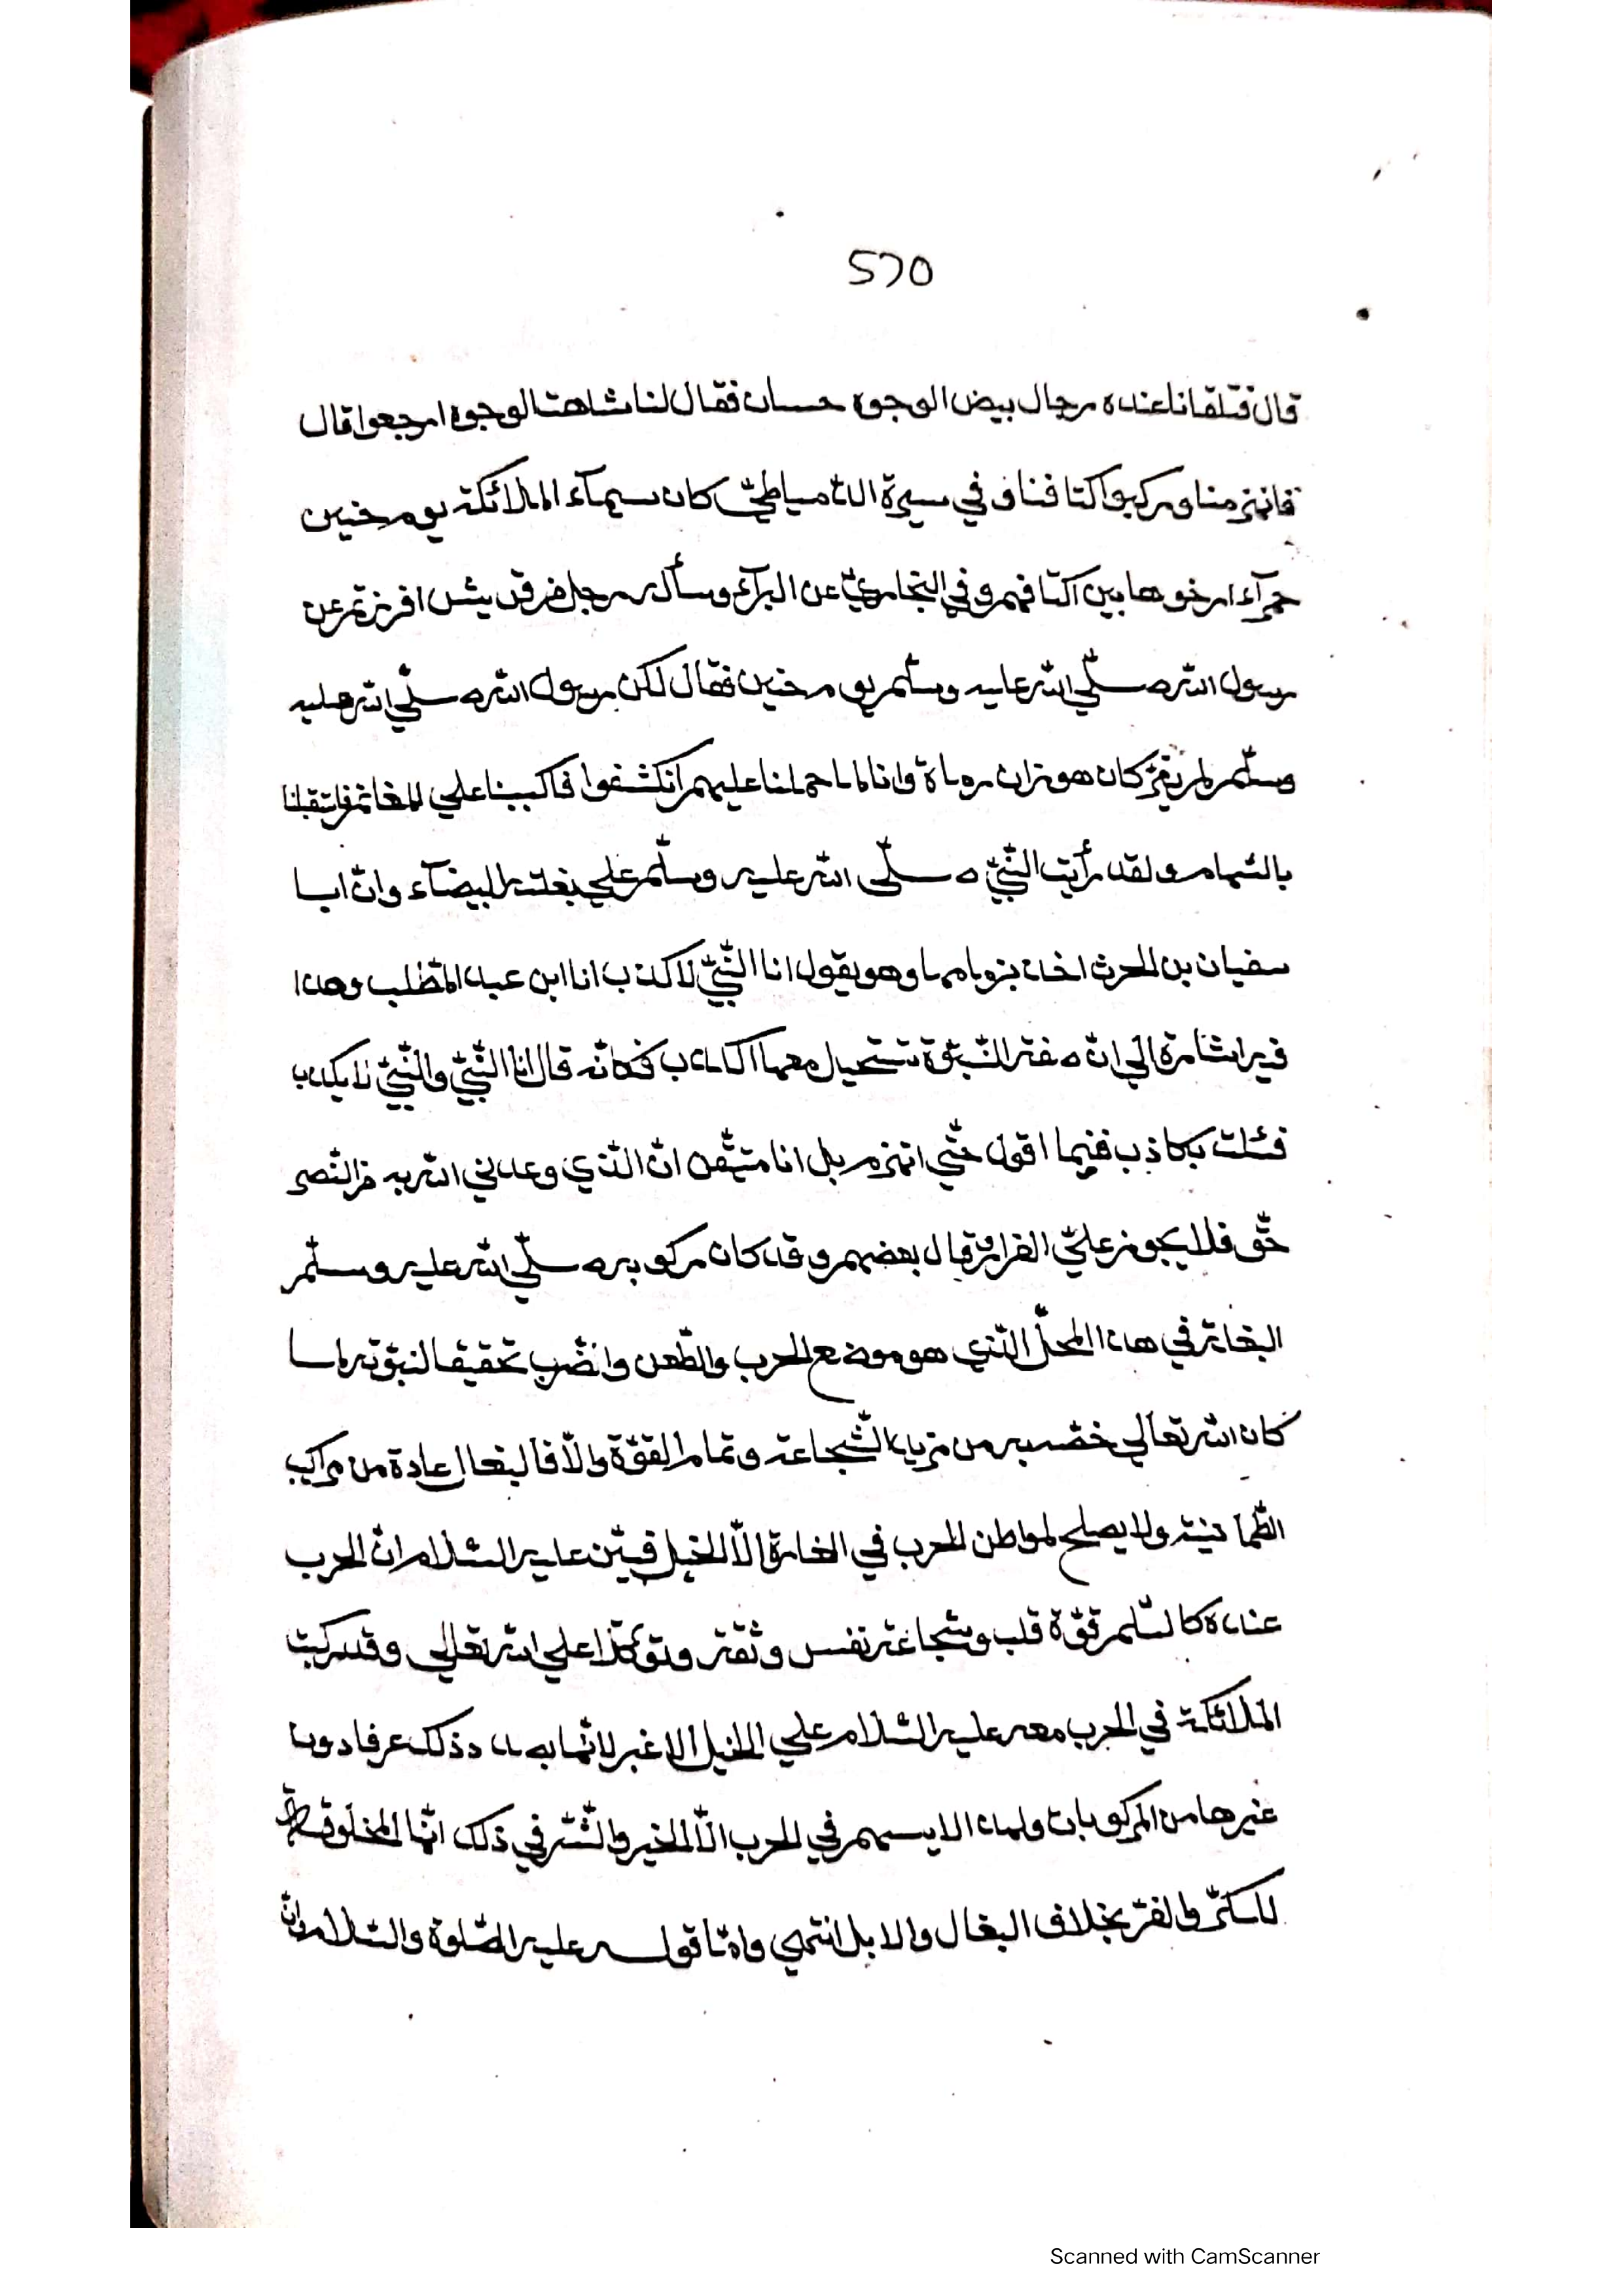 570
قال فتلقانا عنده رجال بيض الوجوه حسان فقال لنا شاهت الوجوه ارجعوا قال
فانهزمنا وركبوا اكتافنا وفي سيرة الدّمياطيّ كان سيمآء الملائكة يوم حنين
حمرآء ارخوها بين اكتافهم وفي البخاريّ عن البرآء وسأله رجل من قريش افررتم عن
رسول الله صلّي الله عليه وسلّم يوم حنين فقال لكن رسول الله صلّي الله عليه
وسلّم لم يفرّ كان هوزان رماة وانا لما حملنا عليهم انكشفوا فاكببنا علي المغانم فاستقبلنا
بالسّهام ولقد رأيت النّبيّ صلّى الله عليه وسلّم علي بغلته البيضآء وانّ ابا
سفيان بن الحرث اخذ بزمامها وهو يقول انا النّبيّ لا كذب انا ابن عبد المطّلب وهذا
فيه اشارة الي انّ صفة النّبوّة تستحيل معها الكذب فكانّه قال انا النّبيّ والنّبيّ لا يكذب
فلست بكاذب فيما اقول حتّي انهزم بل انا متيقّن انّ الّذي وعدني الله به من النّصر
حقّ فلا يجوز عليّ الفرار وقال بعضهم وقد كان ركوبه صلّي الله عليه وسلّم
البغلة في هذا المحلّ الّذي هو موضع الحرب والطّعن والضّرب تحقيقا لنبوّته لما
كان الله تعالي خصّه به من مزيد الشّجاعة وتمام القوّة والّا فالبغال عادة من مراكب
الطّمانينة ولا يصلح لمواطن الحرب في العادة الّا الخيل فبيّن عليه السّلام انّ الحرب
عنده كالسّلم قوّة قلب وشجاعة نفس وثقة وتوكّلا علي الله تعالي وقد ركبت
الملائكة في الحرب معه عليه السّلام علي الخيل لا غير لانّها بصدد ذلك عرفا دون
غيرها من المركوبات ولهذا لا يسهم في الحرب الّا للخيل والسّرّ في ذلك انّها المخلوقة
للكرّ والفرّ بخلاف البغال والابل انتهي وامّا قوله عليه الصّلوة والسّلام انّ
Scanned with CamScanner